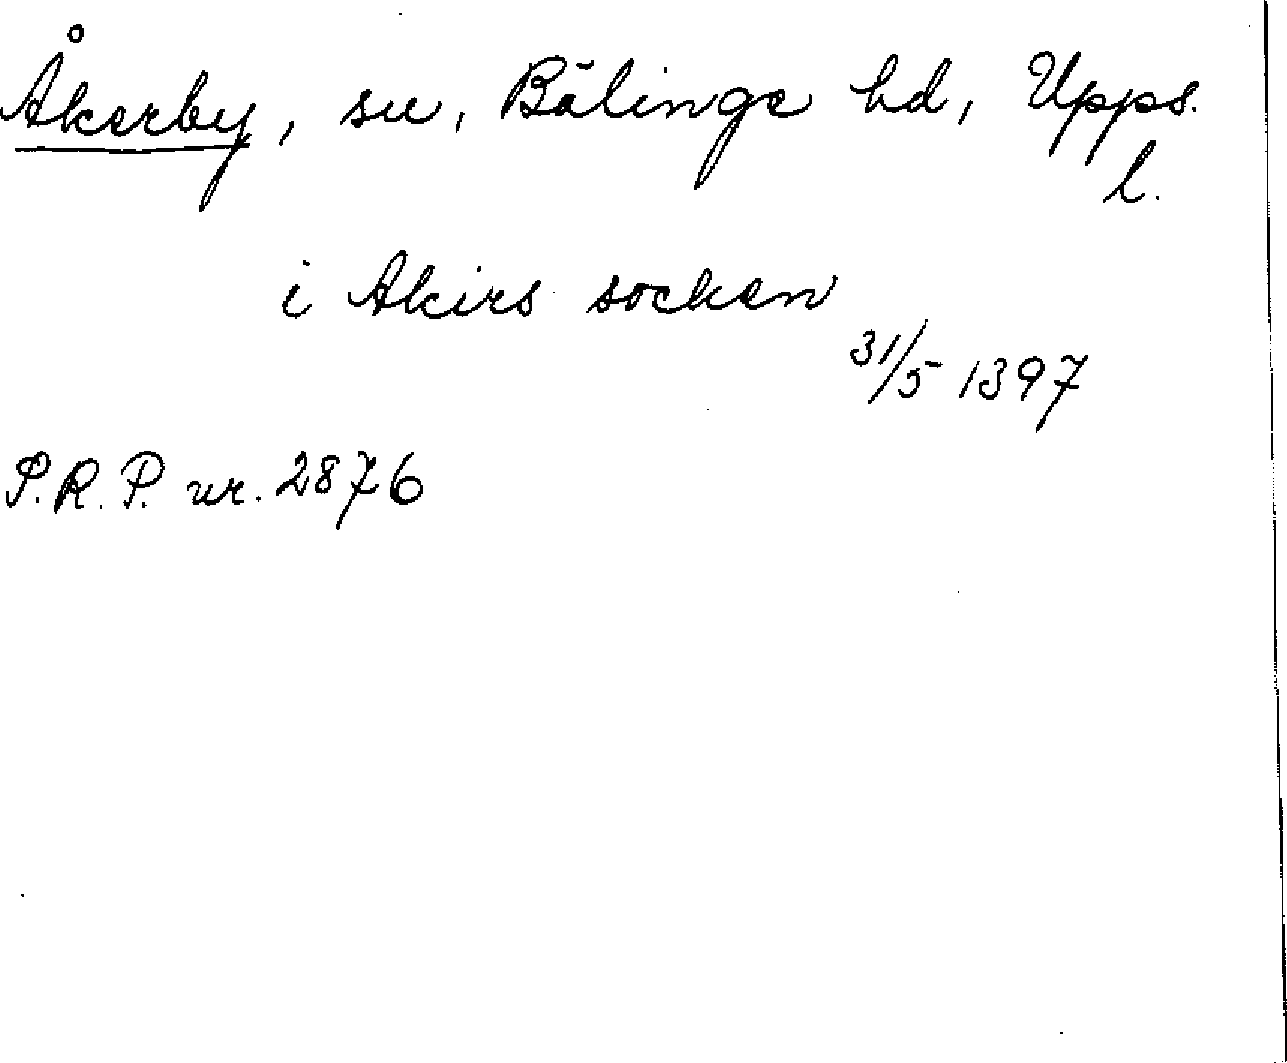 Åkerby, sn, Bälinge hd, Upps.
l.
i Akirs socken
31/5 1397
P.R.P. nr. 2876